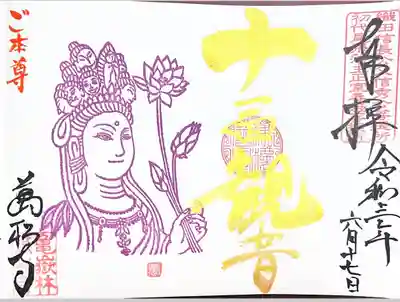 奉拝
令和三年
六月十七日
十一面観音
ご本尊
萬松寺
亀嶽林